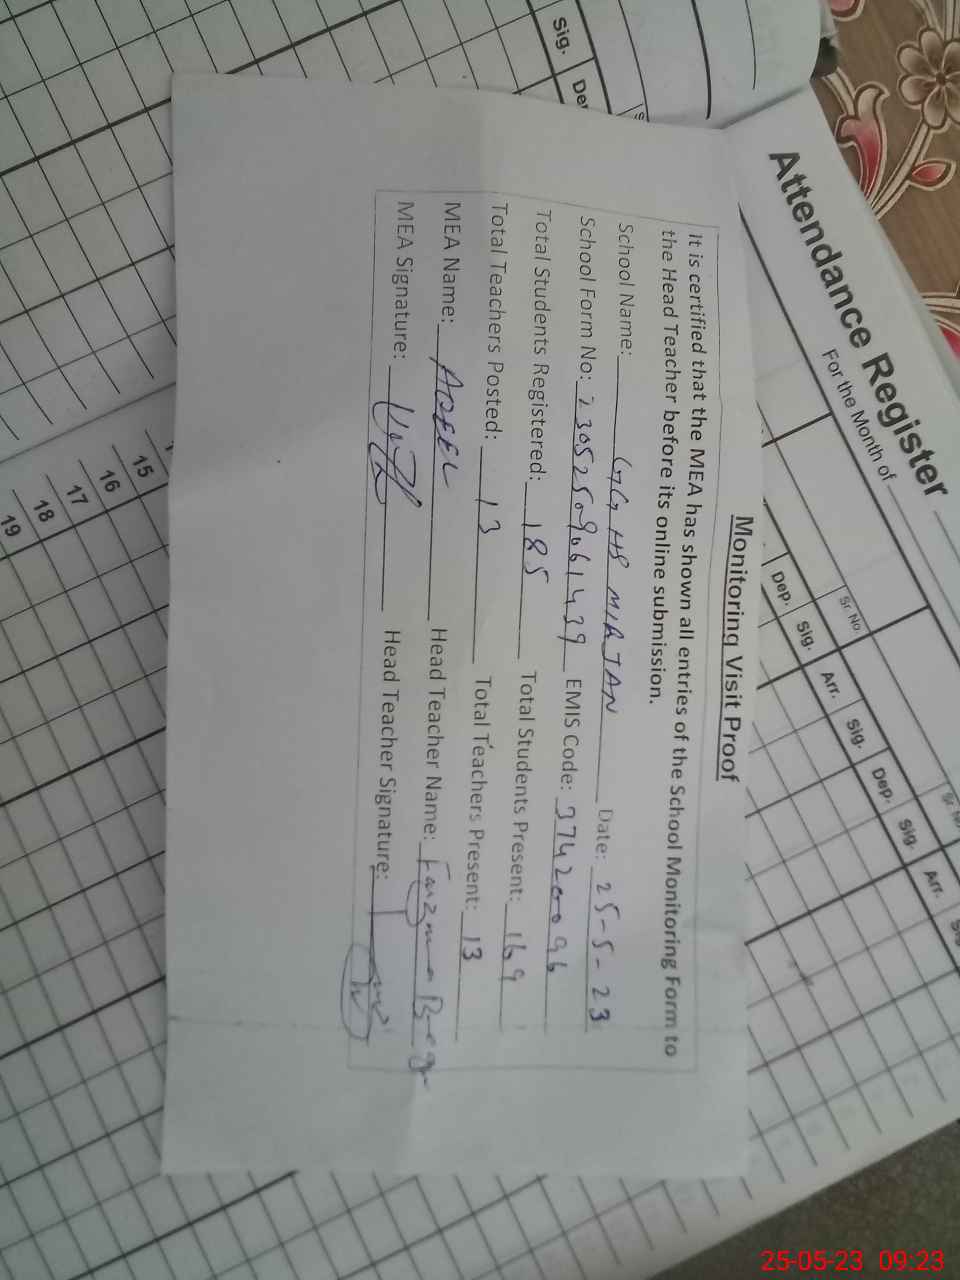 Monitoring Visit Proof
It is certified that the MEA has shown all entries of the School Monitoring Form to
the Head Teacher before its online submission.
School Name: GGHS MIRJAN Date: 25-5-23
School Form No: 23052509061439 EMIS Code: 374200096
Total Students Registered: 185 Total Students Present: 169
Total Teachers Posted: 13 Total Teachers Present: 13
MEA Name: ADEEL Head Teacher Name:
MEA Signature: Head Teacher Signature:
Attendance Register
For the Month of
Sr. No
Sr. No
Dep. Sig. Arr. Sig. Dep. Sig. Arr.
Sig.
15
16
17
18
19
25-05-23 09:23